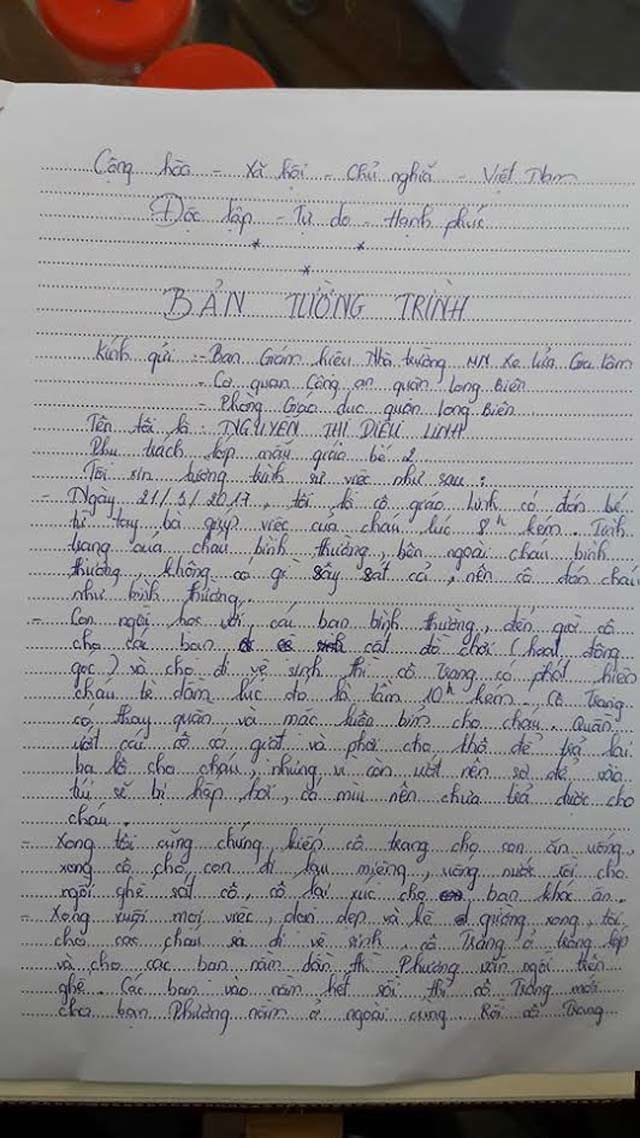 Cộng hòa - Xã hội - Chủ nghĩa - Việt Nam
Độc lập - Tự do - Hạnh phúc
* *
*
BẢN TƯỜNG TRÌNH
Kính gửi : - Ban Giám hiệu Nhà trường MN Xe lửa Gia Lâm
- Cơ quan Công an quận Long Biên
- Phòng Giáo dục quận Long Biên
Tên tôi là : NGUYỄN THỊ DIỆU LINH
Phụ trách lớp mẫu giáo bé 2.
Tôi xin tường trình sự việc như sau :
- Ngày 21/3/2017, tôi là cô giáo Linh có đón bé
từ tay bà việc của cháu lúc 8h kém. Tình
trạng của cháu bình thường, bên ngoài cháu bình
thường, không có gì sây sát cả, nên cô đón cháu
như bình thường.
- Con ngồi học với các bạn bình thường, đến giờ cô
cho các bạn cất đồ chơi (hoạt động
góc) và cho đi vệ sinh thì cô Trang có phát hiện
cháu tè dầm lúc đó là tầm 10h kém. Cô Trang
có thay quần và mặc luôn bỉm cho cháu. Quần
ướt các cô có giặt và phơi cho khô để trả lại
ba lô cho cháu, nhưng vì còn ướt nên sợ để vào
túi sẽ bị hấp hơi, có mùi nên chưa trả được cho
cháu.
- Xong tôi cũng chứng kiến cô trang cho con ăn uống,
xong cô cho con đi lau miệng, uống nước rồi cho
ngồi ghế sát cô, cô lại xúc cho bạn khác ăn.
- Xong xuôi mọi việc, dọn dẹp và kê giường xong, tôi
cho các cháu đi vệ sinh, cô Trang ở trong lớp
và cho các bạn nằm dần thì Phương vẫn ngồi trên
ghế. Các bạn vào nằm hết rồi thì cô Trang mới
cho bạn Phương nằm ở ngoài cùng. Rồi cô Trang